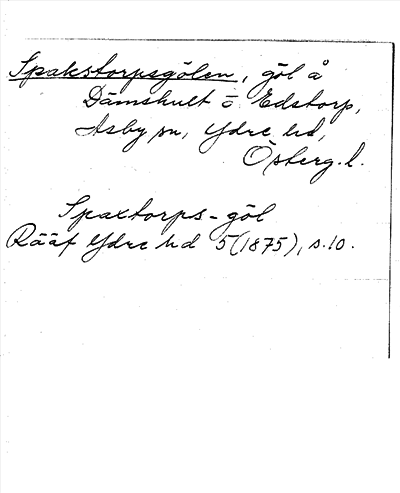 Spakstorpsgölen, göl å
Dämshult o. Edstorp,
Asby sn, Ydre hd,
Österg. l.
Spaxtorps-göl
Rääf Ydre hd 5(1875), s. 10.